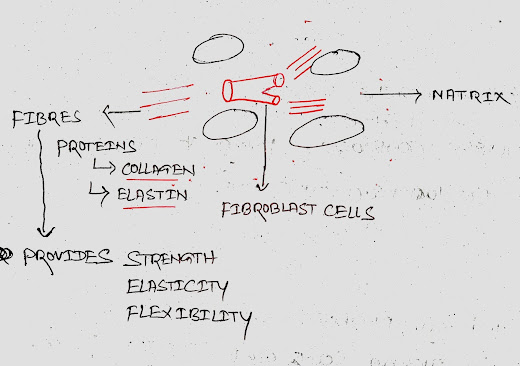 NATRIX
FIBRES
PROTEINS
COLLAGEN
ELASTIN
FIBROBLAST CELLS
PROVIDES STRENGTH
ELASTICITY
FLEXIBILITY